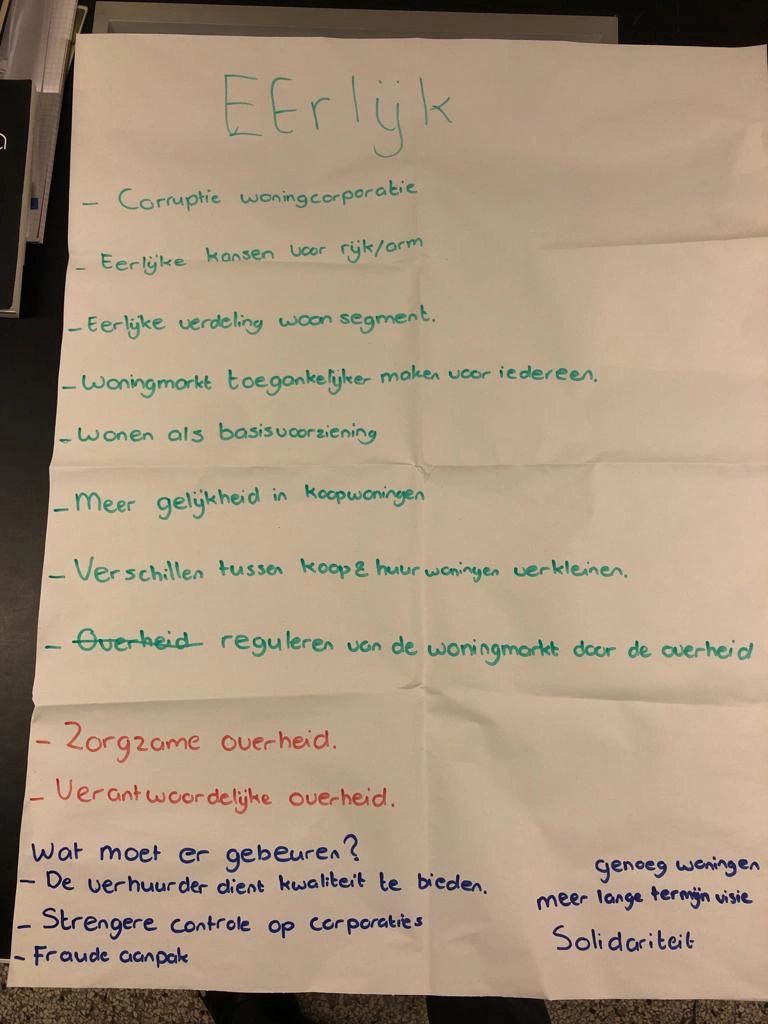 EErlijk
- Corruptie woningcorporatie
- Eerlijke kansen voor rijk/arm
- Eerlijke verdeling woon segment.
- Woningmarkt toegankelijker maken voor iedereen.
- Wonen als basisvoorziening
- Meer gelijkheid in koopwoningen
- Verschillen tussen koop & huur woningen verkleinen.
- Overheid reguleren van de woningmarkt door de overheid
- Zorgzame overheid.
- Verantwoordelijke overheid.
Wat moet er gebeuren?
- De verhuurder dient kwaliteit te bieden.
- Strengere controle op corporaties
- Fraude aanpak
genoeg woningen
meer lange termijn visie
Solidariteit